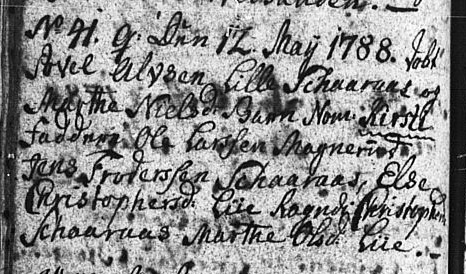 No 41. g. Dün 12 May 1788. Døbt
Povel Alvsen Lille Schaaraas og
Marthe Nielsd: Barn Nom: Kirsti
Faddere Ole Larssen Magner
Jens Frodersen Schaaraas, Else
Christophersd: Lüe Ragnd: Christophers
Schaaraas Marthe Olsd: Lüe.